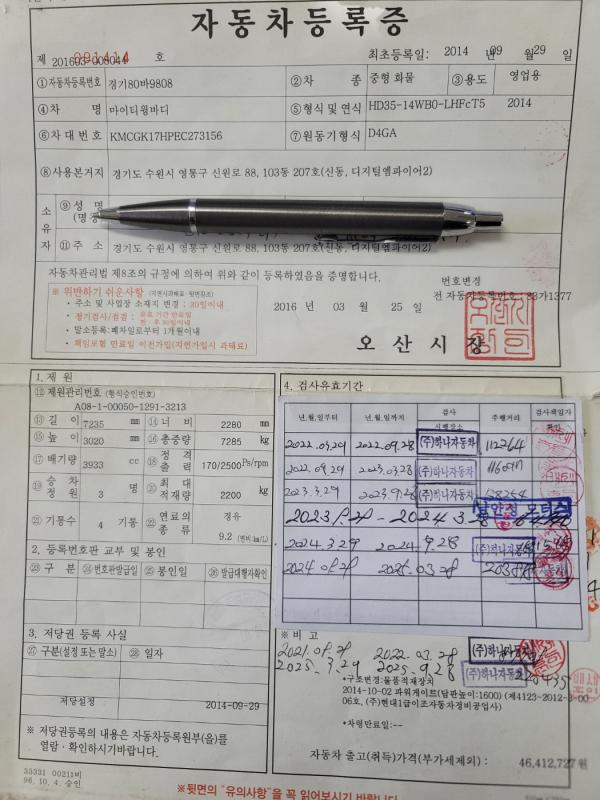 자동차등록증
제 201603-008044 호
최초등록일: 2014 년 09 월 29 일
①자동차등록번호 경기80바9808 ②차 종 중형 화물 ③용도 영업용
④차 명 마이티윙바디 ⑤형식 및 연식 HD35-14WB0-LHFcT5 2014
⑥차 대 번 호 KMCGK17HPEC273156 ⑦원동기형식 D4GA
⑧사용본거지 경기도 수원시 영통구 신원로 88, 103동 207호(신동, 디지털엠파이어2)
소유자
⑨성 명
⑪주 소 경기도 수원시 영통구 신원로 88, 103동 207호(신동, 디지털엠파이어2)
자동차관리법 제8조의 규정에 의하여 위와 같이 등록하였음을 증명합니다.
번호변경
※ 위반하기 쉬운사항 (지연시과태료·뒷면참조)
• 주소 및 사업장 소재지 변경 : 30일이내
• 정기검사/점검 : 유효 기간 만료일 전·후 30일이내
• 말소등록:폐차일로부터 1개월이내
• 책임보험 만료일 이전가입(지연가입시 과태료)
2016 년 03 월 25 일
오 산 시 장
1. 제 원
⑫제원관리번호 (형식승인번호)
A08-1-00050-1291-3213
⑬길 이 7235 mm ⑭너 비 2280 mm
⑮높 이 3020 mm ⑯총중량 7285 kg
⑰배기량 3933 cc ⑱정격출력 170/2500 Ps/rpm
⑲승차정원 3 명 ⑳최대적재량 2200 kg
㉑기통수 4 기통 ㉒연료의종류 경유
9.2 (연비:km/L)
2. 등록번호판 교부 및 봉인
㉓구 분 ㉔번호판발급일 ㉕봉인일 ㉖발급대행자확인
3. 저당권 등록 사실
㉗구분(설정 또는 말소) ㉘일자
저당설정 2014-09-29
※ 저당권등록의 내용은 자동차등록원부(을)를
열람·확인하시기바랍니다.
33331 00211비
96. 10. 4. 승인
4. 검사유효기간
년,월,일부터 년,월,일까지 검사 시행장소 주행거리 검사책임자 확인
2022.03.29 2022.09.28 (주)하나자동차 112264
2022.09.29 2023.03.28 (주)하나자동차
2023.3.29 2023.9.28 (주)하나자동차 128254
2023.9.29 - 2024.3.28
2024.3.29 2024.9.28 (주)하나자동차
2024.09.29 2025.03.28
※ 비 고
2021.09.29 2022.03.28 (주)하나자동차
2025.3.29 2025.9.28 (주)하나자동차
•구조변경:물품적재장치
2014-10-02 파워게이트(답판높이:1600) (제4123-2012-3-00
06호, (주)현대1급이조자동차정비공업사)
•차령만료일:--
자동차 출고(취득)가격(부가세제외) : 46,412,727 원
※뒷면의 "유의사항"을 꼭 읽어보시기 바랍니다.